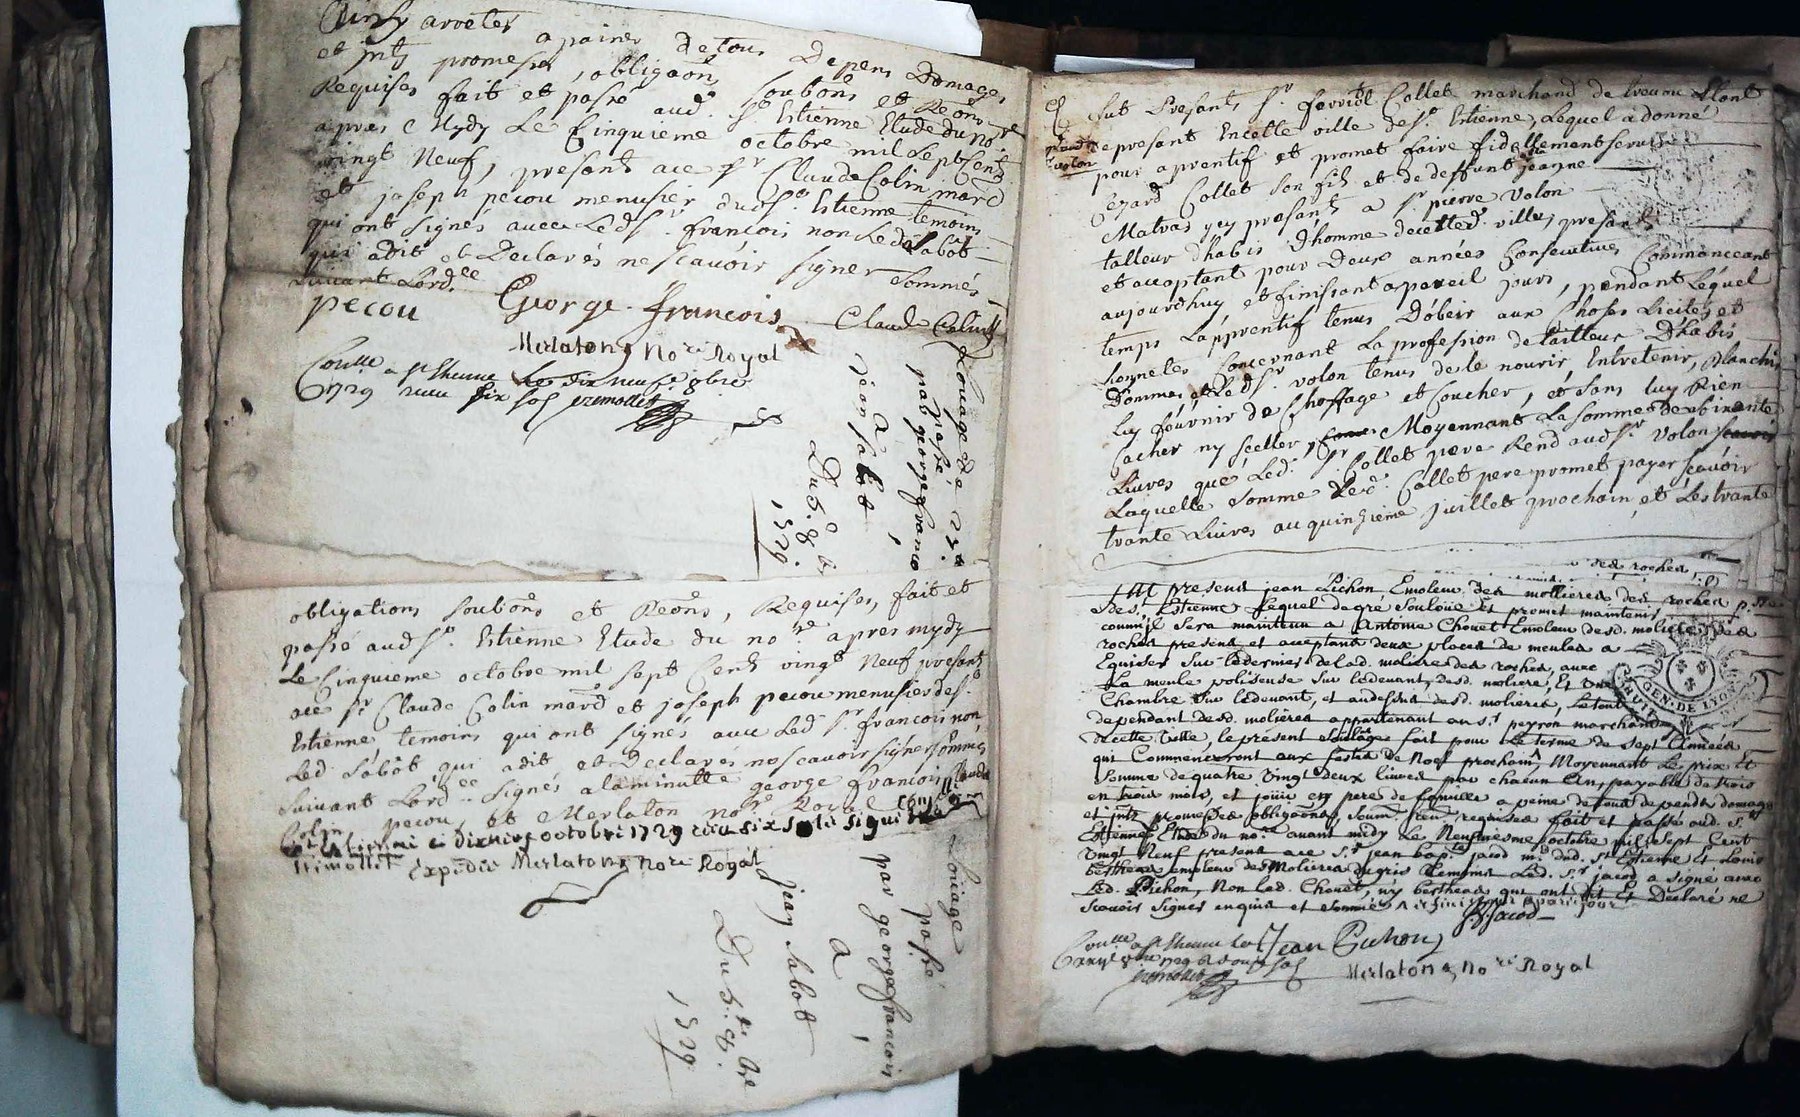 Ainsy arretés
a paines de tous depens domages
et intz promesses, obligaons, soubons et Renons
Requises fait et passé aud. St. Estienne Etude du nore
apres Mydy Le Cinquieme octobre mil sept Cent
vingt Neuf, presents ace sr Claude Colin mard
et joseph pecou menusier dud St. Estienne temoins
qui ont signés avec Led Sr. francois non Led. Sabot
qui a dit et Declarés ne scavoir signer sommés
suivant Lordce
pecou George francois Claude Colin
Merlaton, Nore Royal
Conlle a st Etienne Le dix neuf 8bre
1729 reçu six sols Tremollet
Louage de
passé
par george franco
A
jean sabot
Du 5. 8bre
1729.
obligations soubons et Renons, Requises, fait et
passé aud St. Estienne Etude du nore apres mydy
Le Cinquieme octobre mil sept Cent vingt Neuf presents
ace sr Claude Colin mard et joseph pecou menusier de St.
Estienne, temoins qui ont signés avec Led sr. francois non
Led. Sabot qui a dit et Declarés ne scavoir signer sommés
Suivant Lordce. Signés a la minutte george francois, Claude
Colin, pecou, et Merlaton nore Royal
octobre 1729 six sols signé
Tremollet Expedié Merlaton, Nore Royal
Louage
passé
par george francois
A
jean sabott
Du 5. 8bre
1729
fut Presants sr. Collet marchand de
de presant En cette ville de St. Estienne, Lequel a donné
pour aprentif et promet faire fidellement servir
Cezard Collet son fils et de deffunt jeanne
Matras yey presant a sr pierre Volon
talleur dhabis Dhomme de cetted. ville, presant
et acceptant pour Deux années Consecutives Commanceant
aujourdhuy et finissant a pareil jours, pendant Lequel
temps Laprentif tenus Dobeir aux Choses Licites et
honnetes Concernant La profession de tailleur Dhabis
Dommes, et Led sr. volon tenus de le nourir, Entretenir, Blanchir
Luy fournir de Choffage et Coucher, et sans Luy Rien
Cacher ny sceller, Moyennant La Somme de soixante
Livres que Led. sr Collet pere Rend aud sr. Volon
Laquelle somme Led. Collet pere promet payer scavoir
trante Livres au quinzieme juillet prochain, et Les trante
des roches
fut present jean Pichon Emoleur des mollieres des roches p.sse
de St. Estienne Lequel de gré Soulouë et promet maintenir
comm'il sera maintenu a Antoine Chouet Emoleur desd. molieres des
roches present et acceptant deux places de meules a
Eguiser sur le dernier de lad. moliere des roches, avec
La meule poliseuse sur le devant, desd. moliere, Et une
Chambre sur le devant, et au dessus desd. molieres, Le tout
dependant desd. molieres appartenant au sr peyron marchand
de cette ville, le present soulouage fait pour Le terme de Sept années
qui Commenceront aux festes de Noel prochain, Moyennant Le prix Et
Somme de quatre vingt deux livres par chacun an, payable de trois
en trois mois, et jouir en pere de famille a peine de tous depends domages
et intz promesses obligaons, soum. renon. requises fait et passé aud. St
Estienne Etude du nore avant midy Le Neufviesme octobre mil sept Cent
Vingt Neuf present ace sr jean bapte jacod md dud. St Estienne Et Louis
bertheas emoleur des Molieres Temoins Led. sr jacod a signé avec
Led. Pichon, Non Led. Chouet, ny bertheas qui ont dit Et Declaré ne
scavoir signer enquis et sommés
Jacod
Jean Pichon
Conlle a st Etienne Le
8bre 1729 R douze sols
Tremollet
Merlaton, Nore Royal
GEN. DE LYON